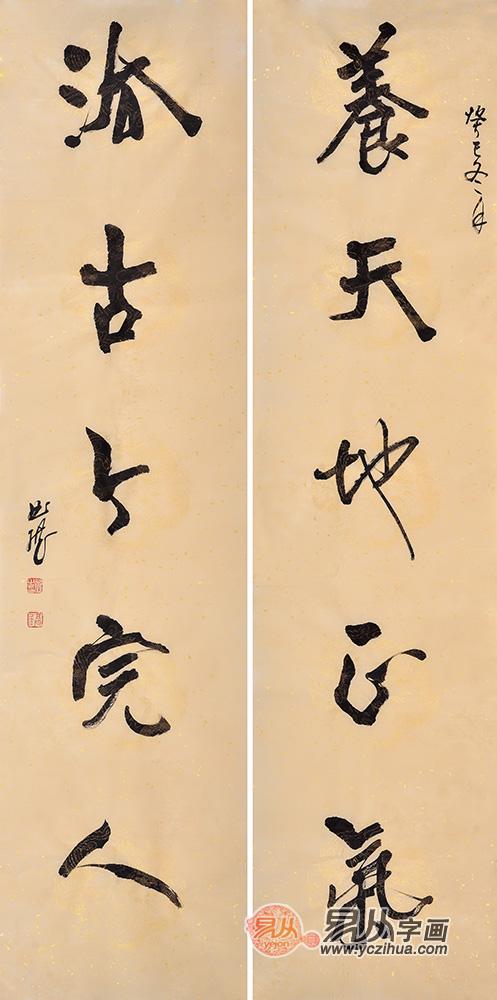 癸巳冬月
養天地正氣
法古今完人
易从
yejon
易从字画
www.yczihua.com